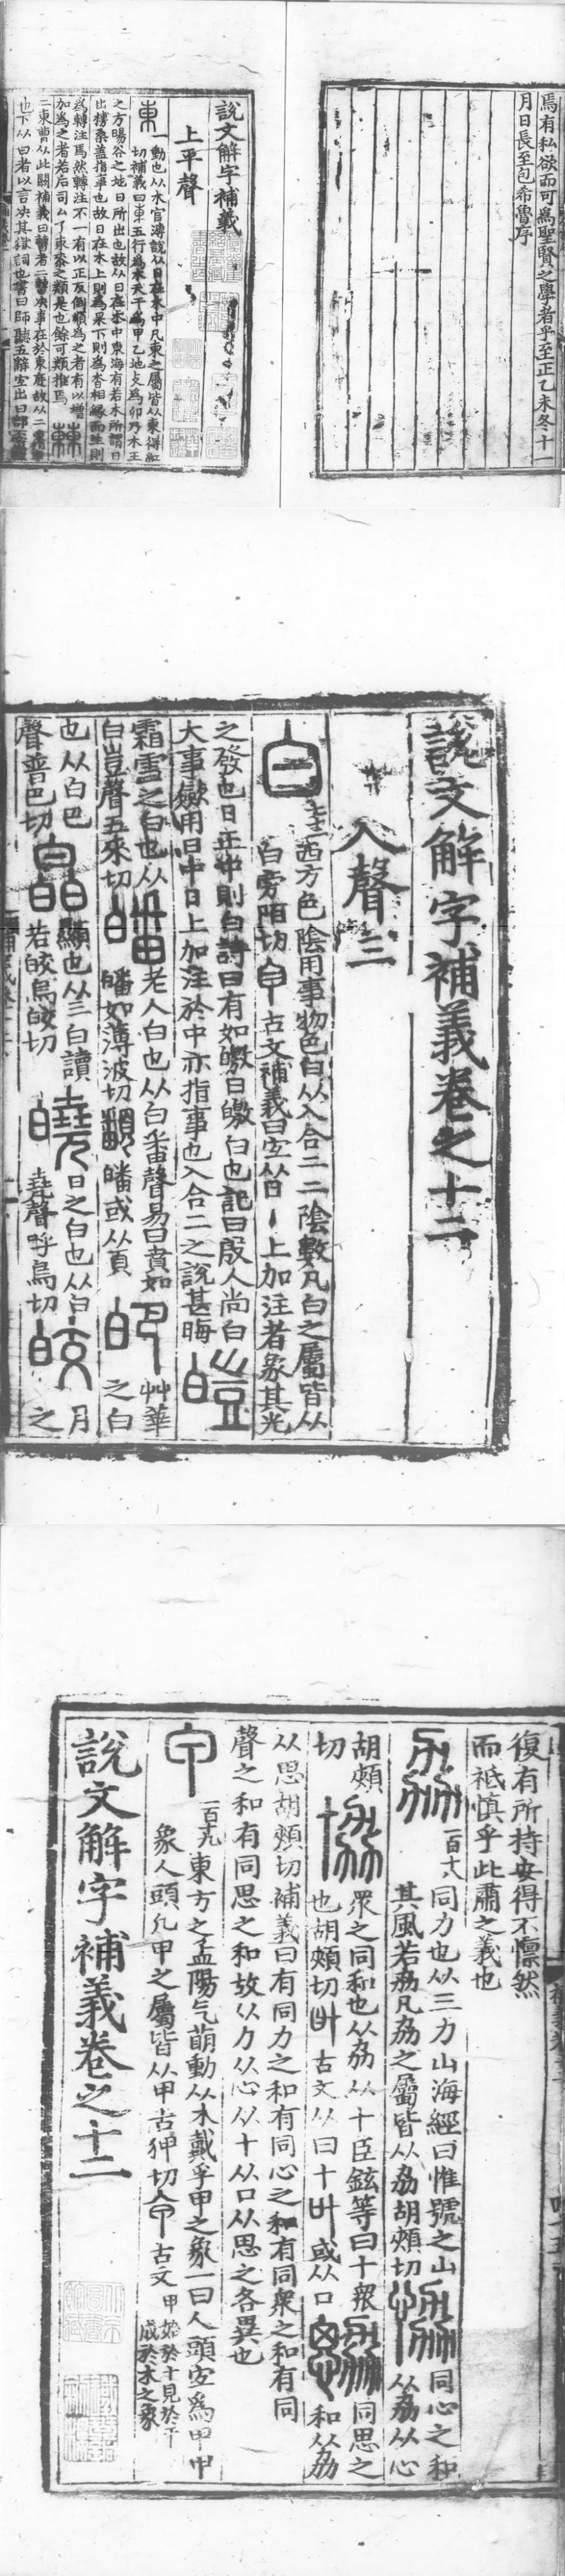 焉有私欲而可為聖賢之學者乎至正乙未冬十一
月日長至包希魯序
說文解字補義
上平聲
東一動也从木官溥說从日在木中凡東之屬皆从東得紅
切補義曰東五行為木天干為甲乙地支為卯乃木王
之方暘谷之地日所出也故从日在木中東海有若木所謂日
出榑桑蓋指事也故日在木上則為杲下則為杳相緣而生則
為轉注焉然轉注不一有以正反倒順為之者有以增
加為之者若后司厶了東之類是也餘可類推焉
二東曹从此闕補義曰決事在於東庭故从二東
也下从曰者以言決其獄詞也書曰師聽五辭
說文解字補義卷之十二
入聲三
白西方色陰用事物色白从入合二二陰數凡白之屬皆从
白旁陌切古文補義曰宜从日丨上加注者象其光
之發也日正中則白詩曰有如皦日皦白也記曰殷人尚白皚
大事斂用日中日上加注於中亦指事也入合二之說甚晦
霜雪之白也从皤老人白也从白番聲易曰賁如
白豈聲五來切皤如薄波切䪛皤或从頁皅艸華
之白也从白巴
聲普巴切皛顯也从三白讀若皎烏皎切
皢日之白也从白堯聲呼鳥切皎月之
復有所持安得不懍然
而祗慎乎此肅之義也
劦一百十八同力也从三力山海經曰惟號之山
其風若劦凡劦之屬皆从劦胡頰切恊同心之和从劦从心
胡頰切協眾之同和也从劦从十臣鉉等曰十眾
也胡頰切叶古文从曰十叶或从口勰同思之和从劦
从思胡頰切補義曰有同力之和有同心之和有同眾之和有同
聲之和有同思之和故从力从心从十从口从思之各異也
甲一百十九東方之孟陽气萌動从木戴孚甲之象一曰人頭宜為甲甲
象人頭凡甲之屬皆从甲古狎切古文甲始於十見於千
成於木之象
說文解字補義卷之十二